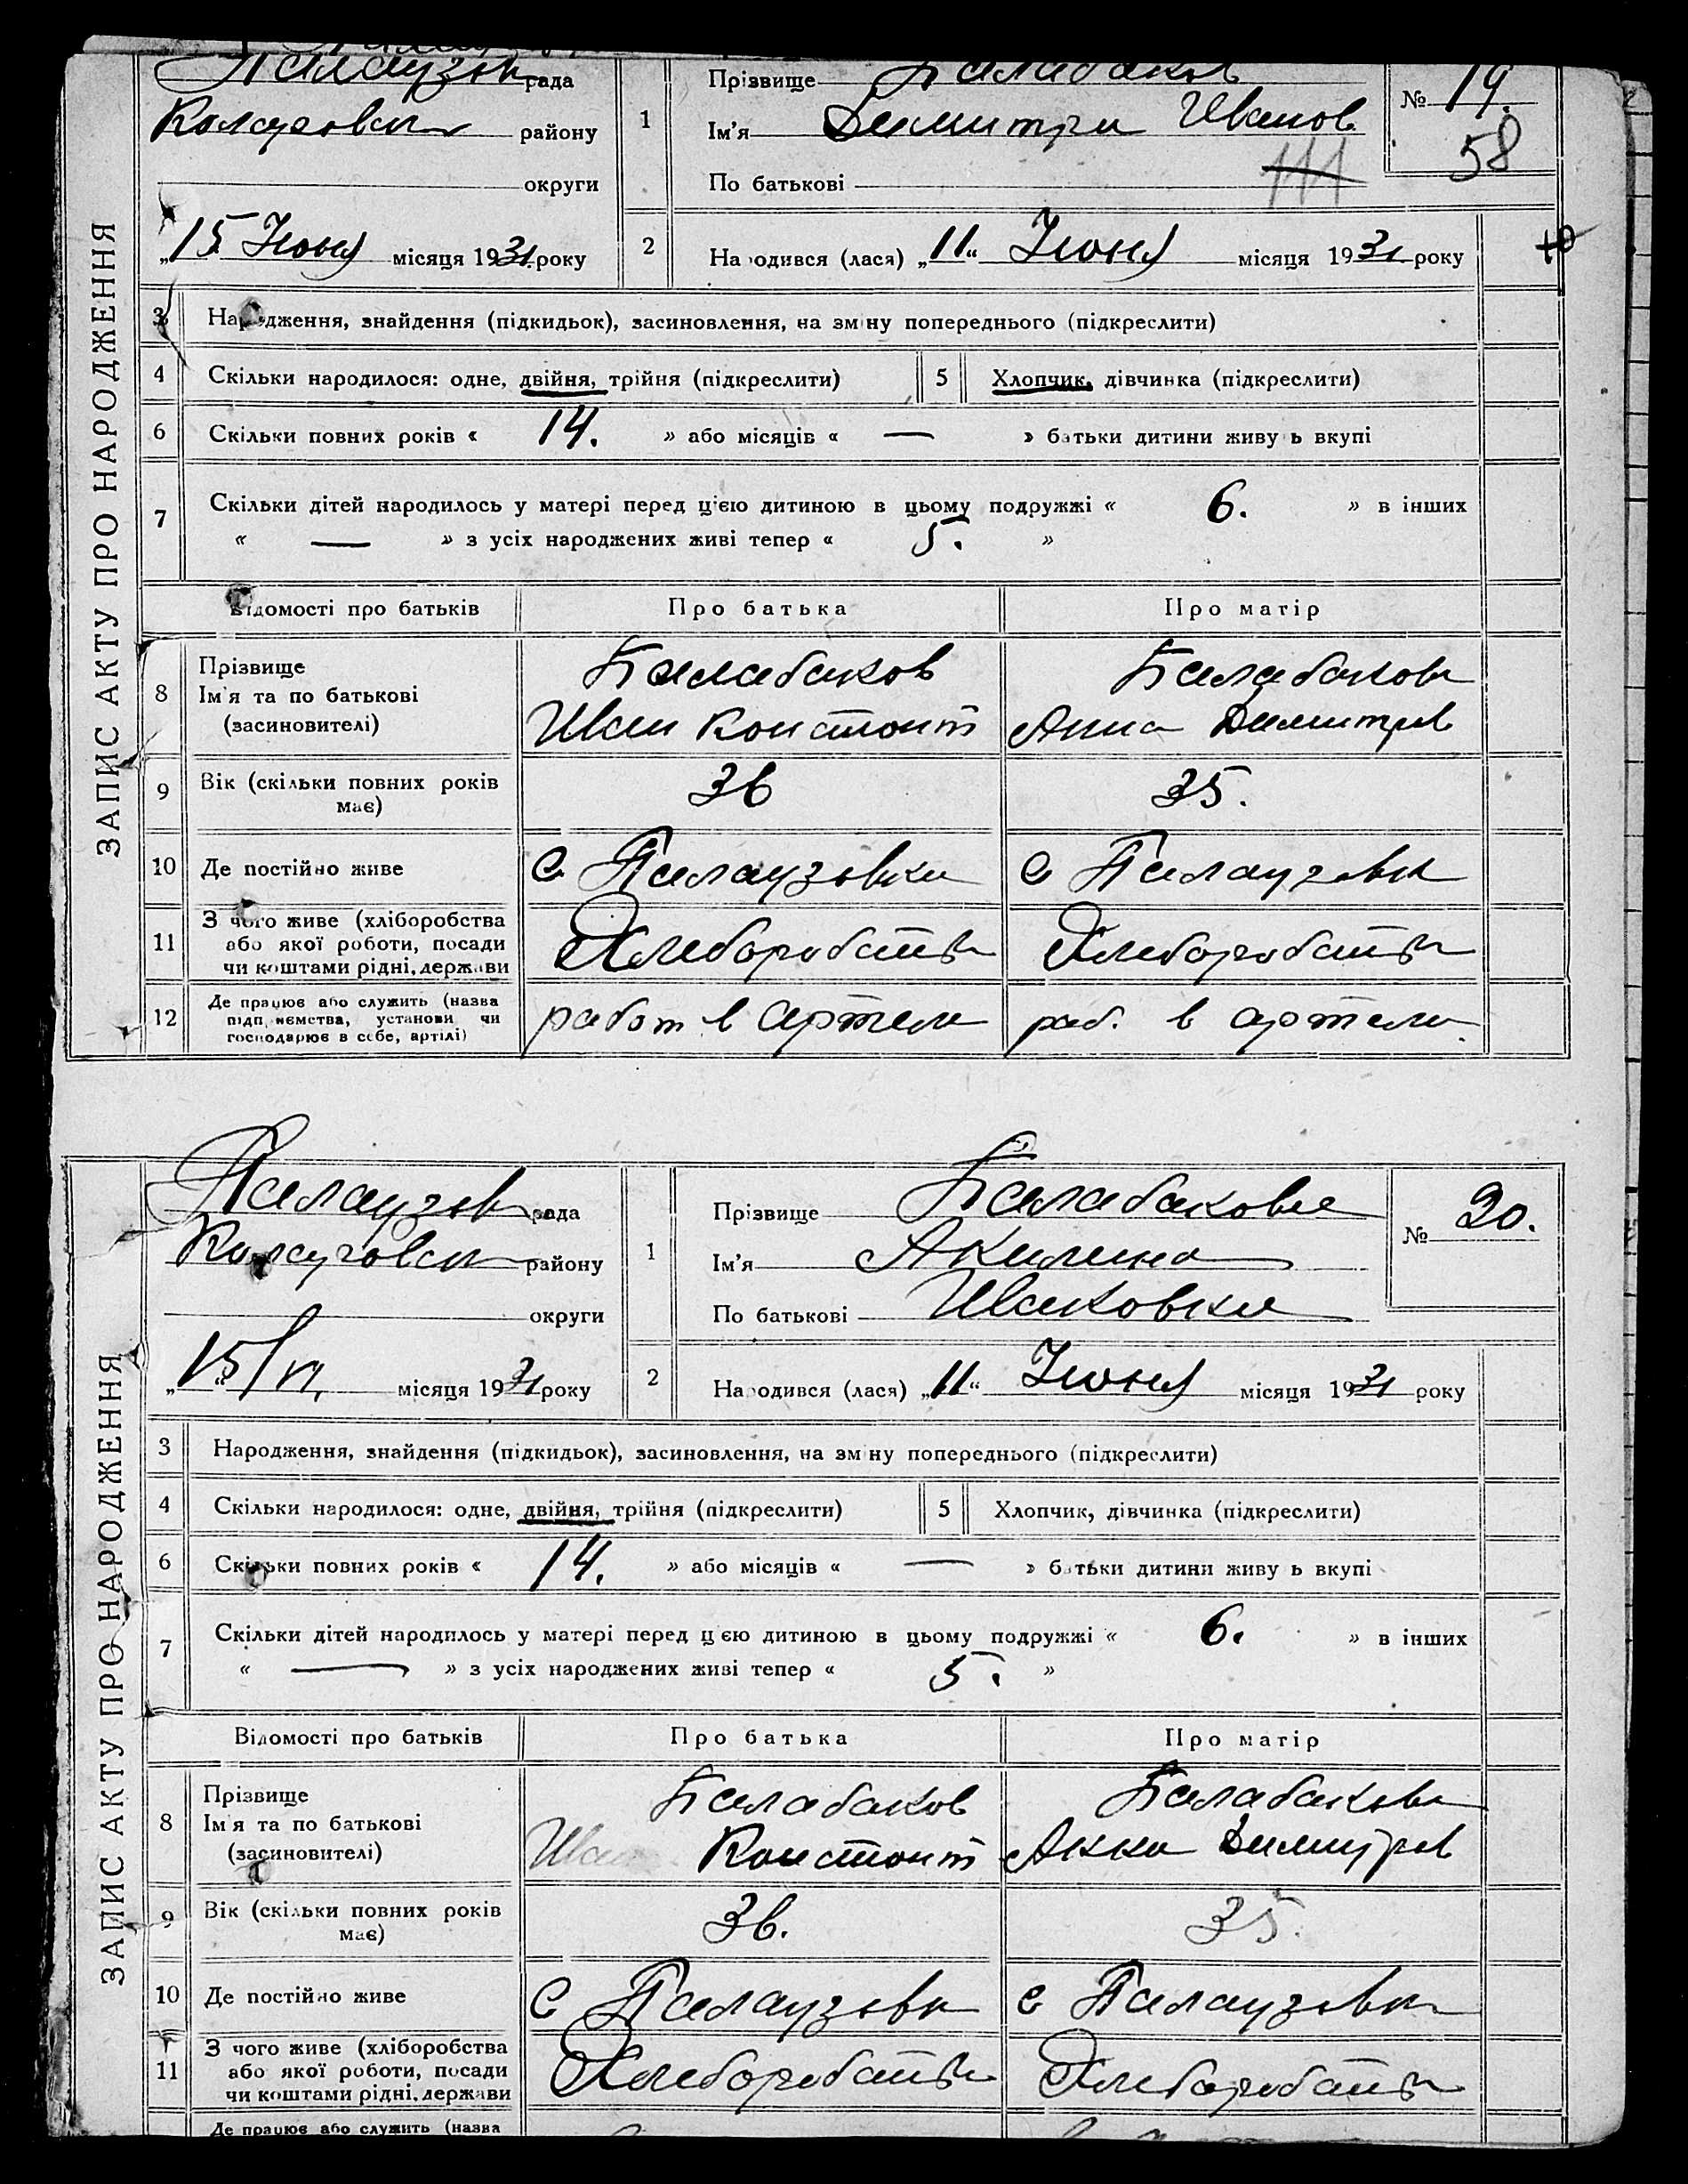 ЗАПИС АКТУ ПРО НАРОДЖЕННЯ
Палаузов рада
Коларовск району
округи
„15" Июня місяця 1931 року
1
Прізвище Балабаков
Ім'я Димитри Иванов
По батькові
111
№ 19.
58
2
Народився (лася) „11" Июня місяця 1931 року
3 Народження, знайдення (підкидьок), засиновлення, на зміну попереднього (підкреслити)
4 Скільки народилося: одне, двійня, трійня (підкреслити) 5 Хлопчик, дівчинка (підкреслити)
6 Скільки повних років « 14. » або місяців « — » батьки дитини живуть вкупі
7 Скільки дітей народилось у матері перед цією дитиною в цьому подружжі « 6. » в інших
« — » з усіх народжених живі тепер « 5. »
Відомості про батьків Про батька Про матір
8 Прізвище Ім'я та по батькові (засиновителі)
Балабаков Балабакова
Иван Констонт Анна Димитров
9 Вік (скільки повних років має) 36 35.
10 Де постійно живе с Палаузовка с Палаузовк
11 З чого живе (хліборобства або якої роботи, посади чи коштами рідні, держави Хлеборобств Хлеборобств
12 Де працює або служить (назва підприємства, установи чи господарює в себе, артілі) работ в артели раб. в артели.
ЗАПИС АКТУ ПРО НАРОДЖЕННЯ
Палаузов рада
Коларовск району
округи
„15/VI. місяця 1931 року
1
Прізвище Балабакова
Ім'я Акилина
По батькові Ивановна
№ 20.
2
Народився (лася) „11" Июня місяця 1931 року
3 Народження, знайдення (підкидьок), засиновлення, на зміну попереднього (підкреслити)
4 Скільки народилося: одне, двійня, трійня (підкреслити) 5 Хлопчик, дівчинка (підкреслити)
6 Скільки повних років « 14. » або місяців « — » батьки дитини живуть вкупі
7 Скільки дітей народилось у матері перед цією дитиною в цьому подружжі « 6. » в інших
« — » з усіх народжених живі тепер « 5. »
Відомості про батьків Про батька Про матір
8 Прізвище Ім'я та по батькові (засиновителі)
Балабаков Балабакова
Иван Констонт Анна Димитров
9 Вік (скільки повних років має) 36. 35.
10 Де постійно живе с Палаузовк с Палаузовк
11 З чого живе (хліборобства або якої роботи, посади чи коштами рідні, держави Хлеборобств Хлеборобств
Де працює або служить (назва